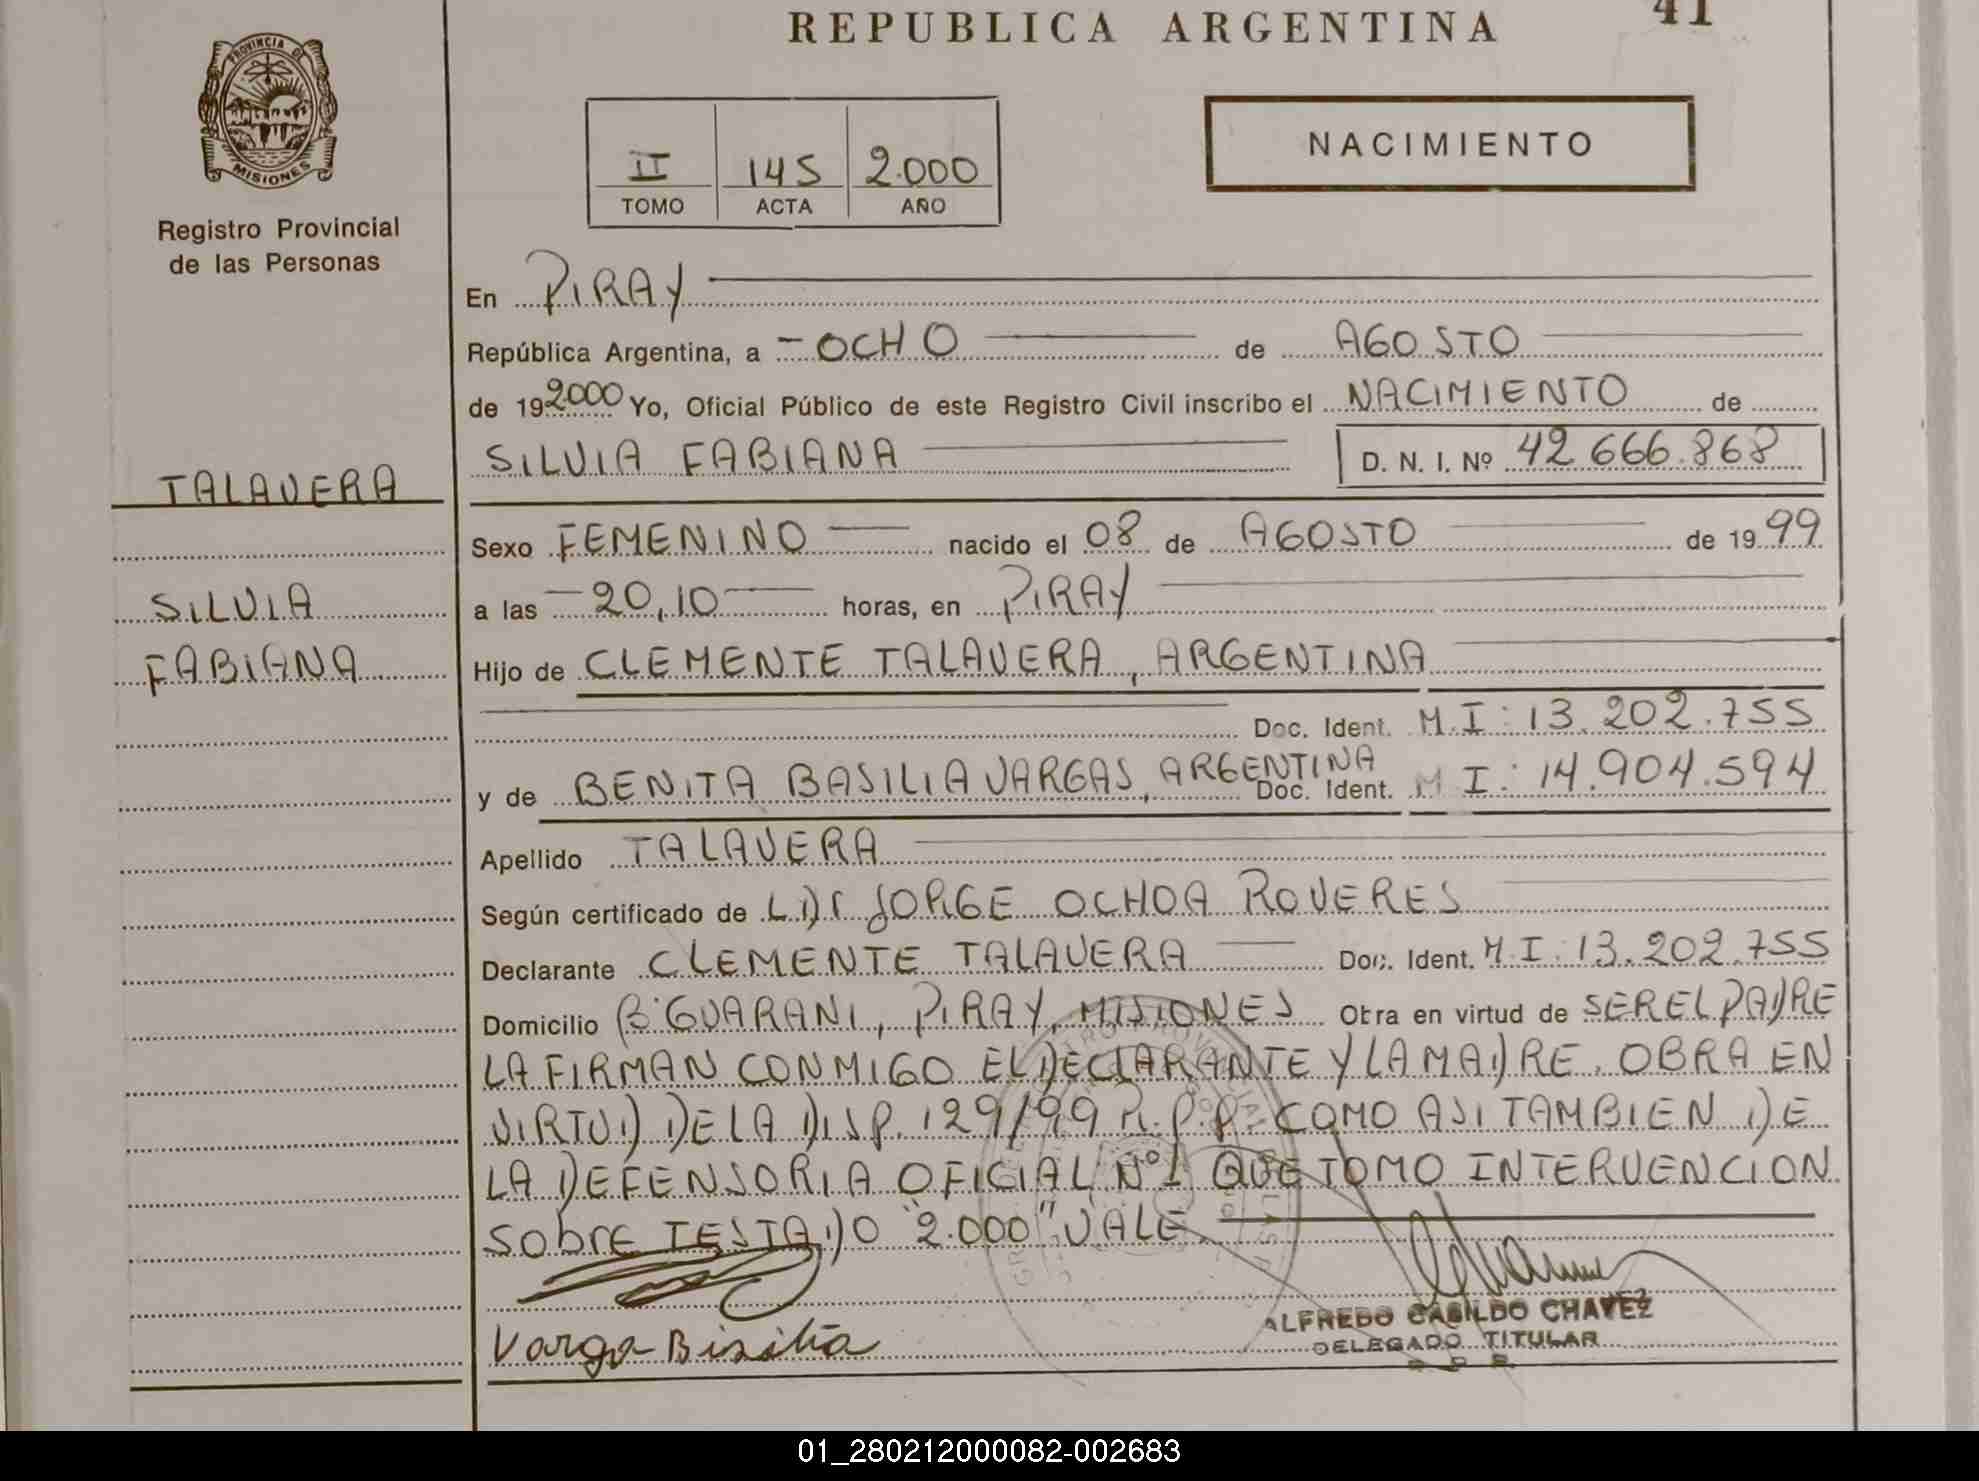 REPUBLICA ARGENTINA
41
PROVINCIA DE
MISIONES
Registro Provincial
de las Personas
II 145 2.000
TOMO ACTA AÑO
NACIMIENTO
En PIRAY
República Argentina, a - OCHO de AGOSTO
de 19 2000 Yo, Oficial Público de este Registro Civil inscribo el NACIMIENTO de
SILVIA FABIANA D. N. I. Nº 42 666.868
TALAVERA
Sexo FEMENINO nacido el 08 de AGOSTO de 19 99
SILVIA
a las - 20,10 horas, en PIRAY
FABIANA
Hijo de CLEMENTE TALAVERA, ARGENTINA
Doc. Ident. M.I: 13.202.755
y de BENITA BASILIA VARGAS, ARGENTINA Doc. Ident. M I: 14.904.594
Apellido TALAVERA
Según certificado de JORGE OCHOA ROVERES
Declarante CLEMENTE TALAVERA Doc. Ident. M.I: 13.202.755
Domicilio Bº GUARANI, PIRAY, MISIONES Obra en virtud de SER EL PADRE
LA FIRMAN CONMIGO EL DECLARANTE Y LA MADRE. OBRA EN
VIRTUD DE LA DISP. 129/99 R.P.P. COMO ASI TAMBIEN DE
LA DEFENSORIA OFICIAL Nº 1 QUE TOMO INTERVENCION
SObrE TESTADO "2.000" VALE
Varga Bisilia
ALFREDO CASILDO CHAVEZ
DELEGADO TITULAR
01_280212000082-002683